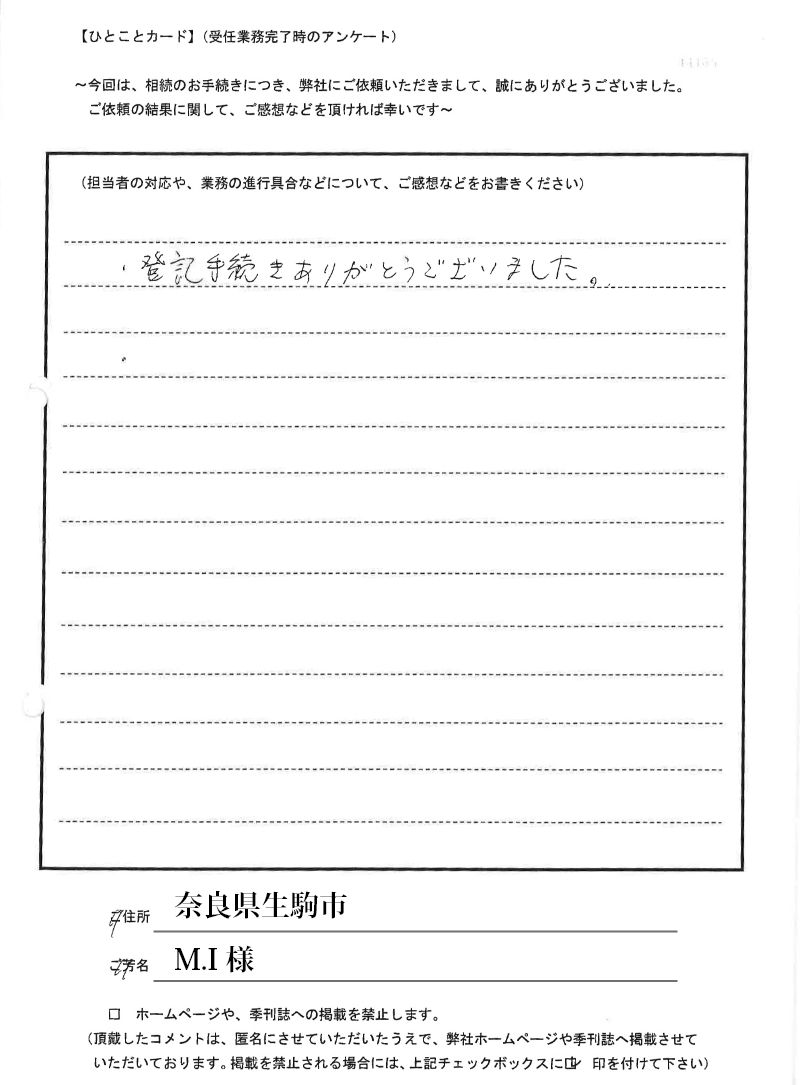 【ひとことカード】(受任業務完了時のアンケート)
～今回は、相続のお手続きにつき、弊社にご依頼いただきまして、誠にありがとうございました。
ご依頼の結果に関して、ご感想などを頂ければ幸いです～
(担当者の対応や、業務の進行具合などについて、ご感想などをお書きください)
・登記手続きありがとうございました。
・
ご住所 奈良県生駒市
ご芳名 M.I 様
□ ホームページや、季刊誌への掲載を禁止します。
(頂戴したコメントは、匿名にさせていただいたうえで、弊社ホームページや季刊誌へ掲載させて
いただいております。掲載を禁止される場合には、上記チェックボックスに☑ 印を付けて下さい)